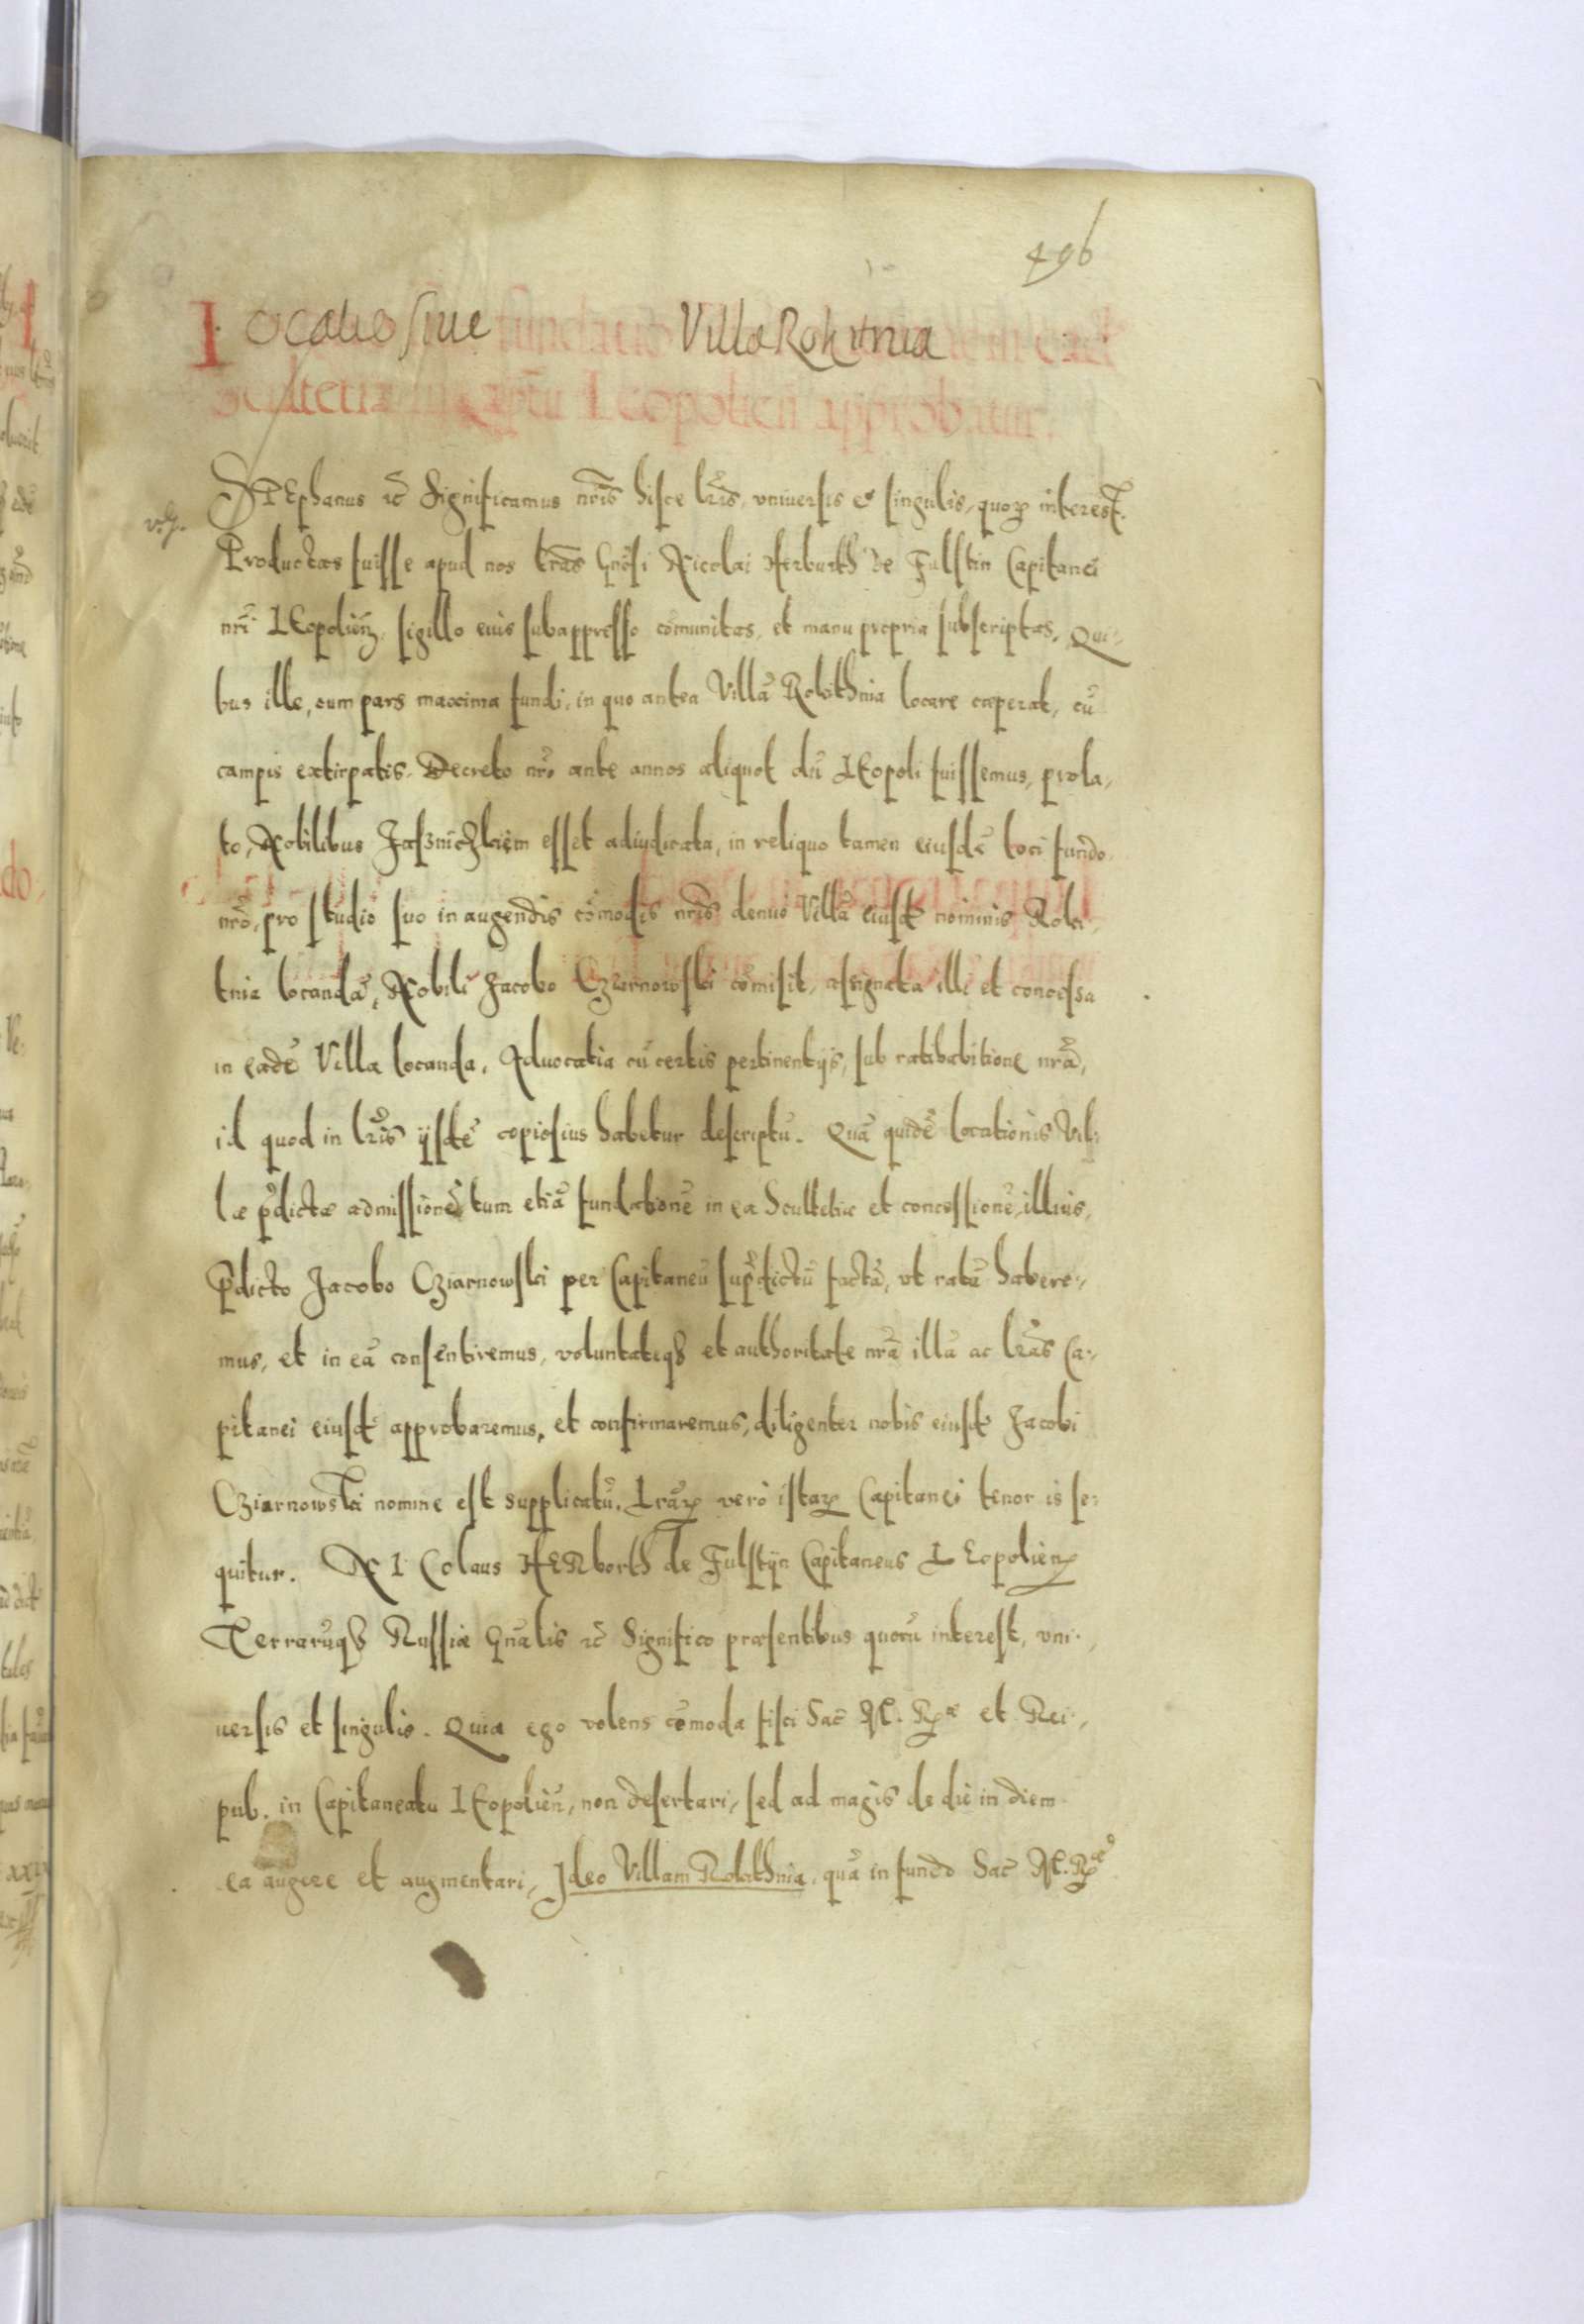 496
Locatio siue fundatio Villæ Rokitnia
Scultetiæ in Capitaneatu Leopolien approbatur.
STEphanus rc̃ Significamus nr̃is hisce lr̃is, vniuersis & singulis, quoꝝ interest.
Productas fuisse apud nos lr̃as Gñosi Nicolai Herburth de Fulstin Capitanei
nr̃i LEopolień, sigillo eius subappresso cõmunitas, et manu propria subscriptas, Qui-
bus ille, cum pars maxima fundi, in quo antea Villã Rokithnia locare cæperat, cũ
campis extirpatis, Decreto nr̃o ante annos aliquot dũ LEopoli fuissemus, prola,
to, Nobilibus esset adiudicata, in reliquo tamen eiusdẽ loci fundo
nr̃o, pro studio suo in augendis cõmodis nr̃is denuo Villã eiusd̃ nominis Roki,
tnia locandã, Nobili Jacobo Cziarnowski cõmisit, assignata illi et concessa
in eadẽ Villa locanda, Aduocatia cũ certis pertinentijs, sub ratihabitione nr̃a,
id quod in lr̃is ijsdẽ copiosius habetur descriptũ. Quã quidẽ locationis Vil-
læ p̃dictæ admissionẽ, tum etiã fundationẽ in ea Scultetiæ et concessionẽ illius,
P̃dicto Jacobo Cziarnowski per Capitaneũ sup̃dictũ factã, vt ratã habere-
mus, et in eã consentiremus, voluntateqꝫ et authoritate nr̃a illã ac lr̃as Ca-
pitanei eiusd̃ approbaremus, et confirmaremus, diligenter nobis eiusd̃ Jacobi
Cziarnowski nomine est supplicatũ. Lr̃aꝝ verò istaꝝ Capitanei tenor is se-
quitur. NICOlaus HERborth de Fulstijn Capitaneus LEopolień
Terrarũqꝫ Russiæ Gñalis rc̃ Significo præsentibus quorũ interest, vni-
uersis et singulis. Quia ego volens cõmoda fisci Sac̃ M. Rꝫæ et Rei,
pub. in Capitaneatu LEopolień, non desertari, sed ad magis de die in diem
ea augere et augmentari, Jdeo Villam Rokithnia, quã in fundo Sac̃ M. Rꝫæ